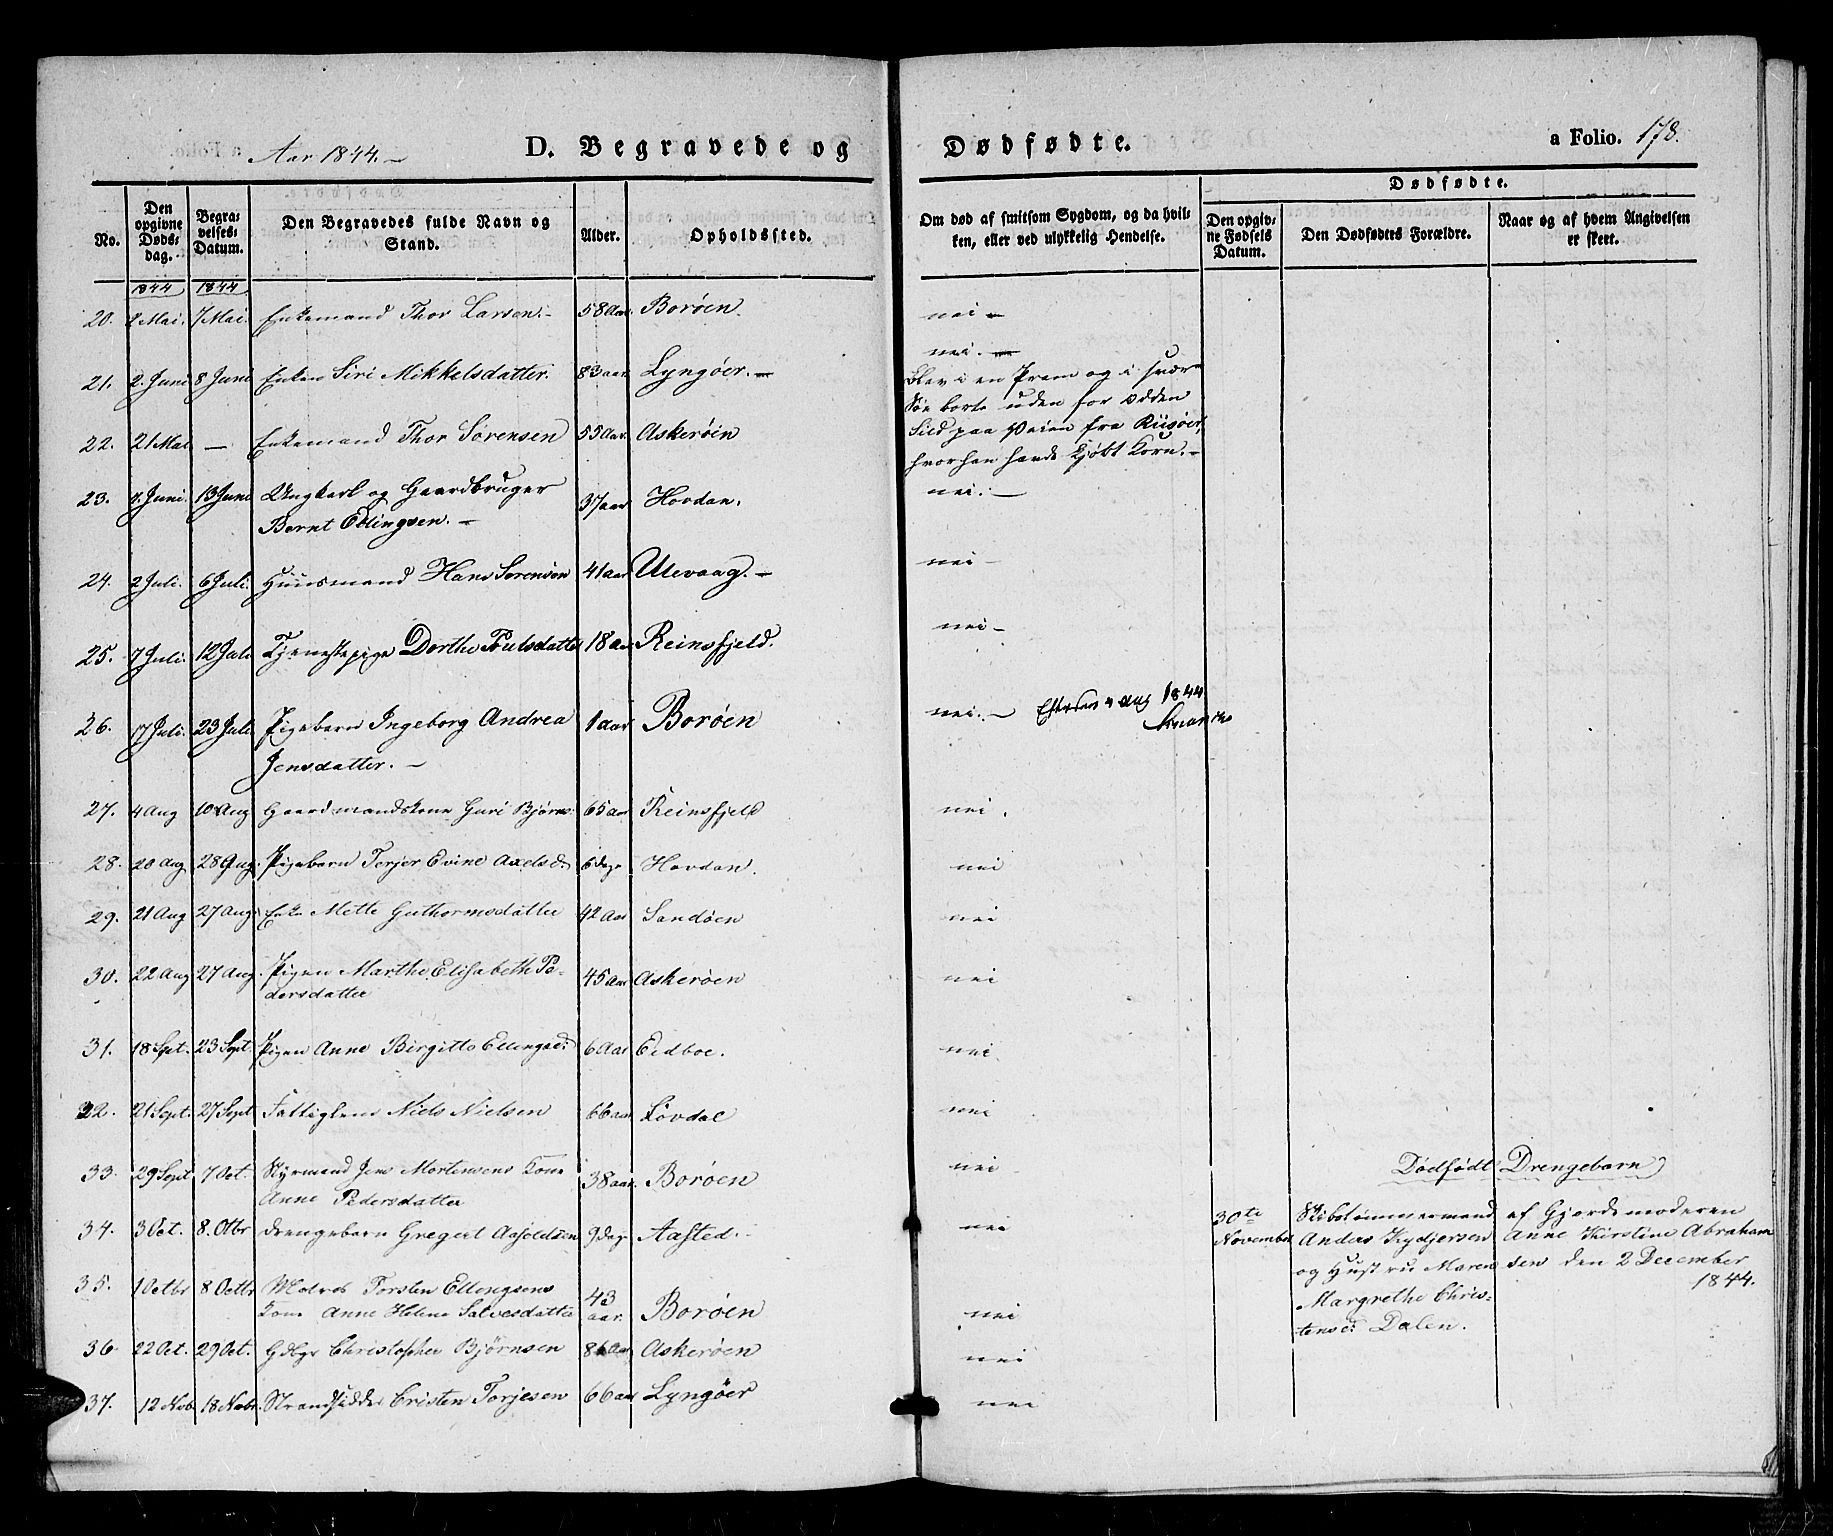 Aar 1844. –
D. Begravede og
Dødfødte.
a Folio. 178.
No.
Den opgivne Døds-dag.
Begra-velses-Datum.
Den Begravedes fulde Navn og Stand.
Alder.
Opholdssted.
Om død af smitsom Sygdom, og da hvil-ken, eller ved ulykkelig Hendelse.
Dødfødte.
Den opgiv-ne Fødsels Datum.
Den Dødfødtes Forældre.
Naar og af hvem Angivelsen er skeet.
1844 1844
20. 2 Mai. 7 Mai. Enkemand Thor Larsen. – 58 Aar. Borøen. nei –
21. 2. Juni 8 Juni Enken Siri Mikkelsdatter. 83 aar Lyngøer. – nei. –
22. 21 Mai – Enkemand Thor Sørensen 55 Aar. Askerøen
Blev i en Pram og i svær
Søe borte uden for Odden
Sild paa Veien fra Riisøer,
hvor han havde kjøbt Korn. –
23. 7. Juni. 13 Juni Ungkarl og Gaardbruger 37 aar Hovdan. nei. –
Bernt Ellingsen. –
24. 2 Juli. 6 Juli. Huusmand Hans Sørensen 41 aar Ulevaag. – nei –
25. 7 Juli. 12 Juli Tjenestepige Dorthe Poulsdatter 18 aar Reinsfjeld. nei –
26. 17 Juli. 23 Juli Pigebarn Ingeborg Andrea 1 aar Borøen nei. – Efterseet 4 Aug 1844
Jensdatter. –
27. 4 Aug 10 Aug Gaardmandskone Guri Bjørns 65 Aar Reinsfjeld nei.
28. 20 Aug 28 Aug. Pigebarn Terjer Evine Axelsd. 6 dage Hovdan. nei
29. 21 Aug 27 Aug Enke Mette Guthormsdatter 42 Aar Sandøen nei
30. 22 Aug 27 Aug. Pigen Marthe Elisabeth Pe- 45 Aar Askerøen nei
dersdatter
31. 18 Spt. 23 Sept. Pigen Anne Birgitte Ellingsd: 6 Aar Eidboe. nei
32. 21 Sept. 27 Sept Fattiglem Niels Nielsen 66 aar Løvdal nei
33. 29 Sept 7 Oct. Styrmand Jens Mortensens Kone 38 aar. Borøen nei
Anne Pedersdatter
34. 3 Oct. 8. Otbr Drengebarn Gregert Aasoldsen 9 dage Aasted. nei
35. 1 Octbr 8 Octbr Matros Torsten Ellingsens 43
Kone Anne Helene Salvesdatter aar. Borøen nei
36. 22 Oct. 29 Oct. Gdbgr Christopher Bjørnsen Aar Askerøen nei
37. 12 Nob 18 Nobr. Strandsidder Cristen Torjesen 66 aar Lyngøer nei
Dødfødt Drengebarn
30te Skibstømmermand af Gjordemoderen
November Anders Kydjersen Anne Kirstine Abraham
og Hustru Maren sen den 2 December
Margrethe Chris- 1844.
tensd: Dalen.